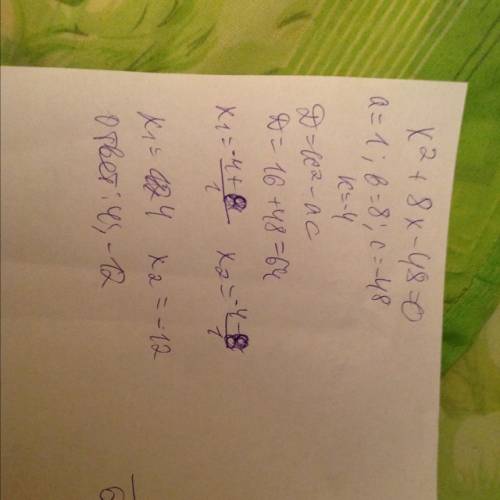 x² + 8x - 48 = 0
a = 1; в = 8; c = -48
к = 4
D = к² - ac
D = 16 + 48 = 64
x1 = (-4 + 8)/1 x2 = (-4 - 8)/1
x1 = 4 x2 = -12
Ответ: 4; -12
6